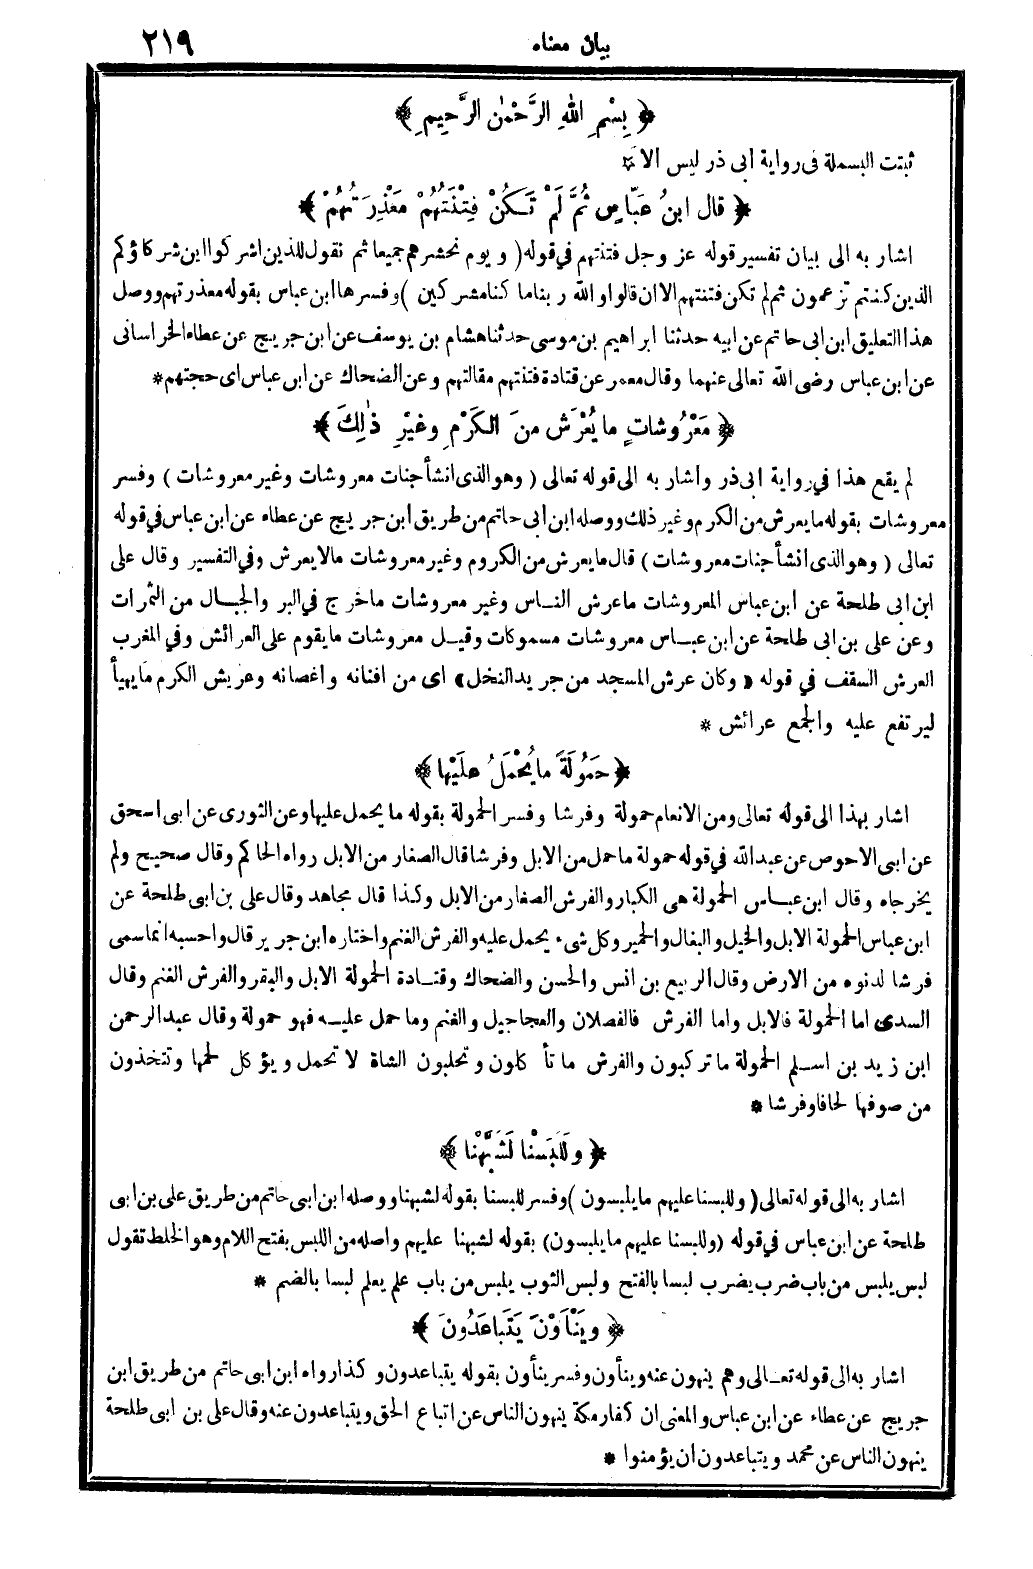 بيان معناه ٢١٩
﴿ بِسْمِ اللهِ الرَّحْمٰنِ الرَّحِيمِ ﴾
ثبتت البسملة فى رواية ابى ذر ليس الا *
﴿ قال ابنُ عَبَّاسٍ ثُمَّ لَمْ تَـكُنْ فِتْنَتَهُمْ مَعْذِرَتُهُمْ ﴾
اشار به الى بيان تفسير قوله عز وجل فتنتهم في قوله ( ويوم نحشرهم جميعا ثم نقول للذين اشركوا اين شركاؤكم
الذين كنتم تزعمون ثم لم تكن فتنتهم الا ان قالوا والله ربنا ما كنا مشركين ) وفسرها ابن عباس بقوله معذرتهم ووصل
هذا التعليق ابن ابى حاتم عن ابيه حدثنا ابراهيم بن موسى حدثنا هشام بن يوسف عن ابن جريج عن عطاء الخراسانى
عن ابن عباس رضى الله تعالى عنهما وقال معمر عن قتادة فتنتهم مقالتهم وعن الضحاك عن ابن عباس اى حجتهم *
﴿ مَعْرُوشاتٍ ما يُعْرَش منَ الكَرْمِ وغيْرِ ذٰلِكَ ﴾
لم يقع هذا في رواية ابى ذر واشار به الى قوله تعالى ( وهو الذى انشأ جنات معروشات وغير معروشات ) وفسر
معروشات بقوله ما يعرش من الكرم وغير ذلك ووصله ابن ابى حاتم من طريق ابن جريج عن عطاء عن ابن عباس في قوله
تعالى ( وهو الذى انشأ جنات معروشات ) قال ما يعرش من الكروم وغير معروشات مالا يعرش وفي التفسير وقال على
ابن ابى طلحة عن ابن عباس المعروشات ما عرش النـاس وغير معروشات ماخرج في البر والجبـال من الثمرات
وعن على بن ابى طلحة عن ابن عبـاس معروشات مسموكات وقيـل معروشات ما يقوم على العرائش وفي المغرب
العرش السقف في قوله « وكان عرش المسجد من جريد النخل » اى من افنانه واغصانه وعريش الكرم ما يهيأ
ليرتفع عليه والجمع عرائش *
﴿ حَمُولَةً ما يُحْمَلُ علَيْها ﴾
اشار بهذا الى قوله تعالى ومن الانعام حمولة وفرشا وفسر الحمولة بقوله ما يحمل عليها وعن الثورى عن ابى اسحق
عن ابى الاحوص عن عبد الله في قوله حمولة ما حمل من الابل وفرشا قال الصغار من الابل رواه الحاكم وقال صحيح ولم
يخرجاه وقال ابن عبـاس الحمولة هى الكبار والفرش الصغار من الابل وكذا قال مجاهد وقال على بن ابى طلحة عن
ابن عباس الحمولة الابل والخيل والبغال والحمير وكل شىء يحمل عليه والفرش الغنم واختاره ابن جرير قال واحسبه انما سمى
فرشا لدنوه من الارض وقال الربيع بن انس والحسن والضحاك وقتـادة الحمولة الابل والبقر والفرش الغنم وقال
السدى اما الحمولة فالابل واما الفرش فالفصلان والعجاجيل والغنم وما حمل عليـه فهو حمولة وقال عبد الرحمن
ابن زيد بن اسـلم الحمولة ما تركبون والفرش ما تأكلون وتحلبون الشاة لا تحمل ويؤكل لحمها وتتخذون
من صوفها لحافا وفرشا *
﴿ ولَلَبَسْنا لَشَبَّهْنا ﴾
اشار به الى قوله تعالى ( وللبسنا عليهم ما يلبسون ) وفسر للبسنا بقوله لشبهنا ووصله ابن ابى حاتم من طريق على بن ابى
طلحة عن ابن عباس في قوله (وللبسنا عليهم ما يلبسون) بقوله لشبهنا عليهم واصله من اللبس بفتح اللام وهو الخلط تقول
لبس يلبس من باب ضرب يضرب لبسا بالفتح ولبس الثوب يلبس من باب علم يعلم لبسا بالضم *
﴿ ويَنْأَوْنَ يَتَباعَدُونَ ﴾
اشار به الى قوله تعـالى وهم ينهون عنه وينأون وفسر ينأون بقوله يتباعدون وكذا رواه ابن ابى حاتم من طريق ابن
جريج عن عطاء عن ابن عباس والمعنى ان كفار مكة ينهون الناس عن اتباع الحق ويتباعدون عنه وقال على بن ابى طلحة
ينهون الناس عن محمد ويتباعدون ان يؤمنوا *